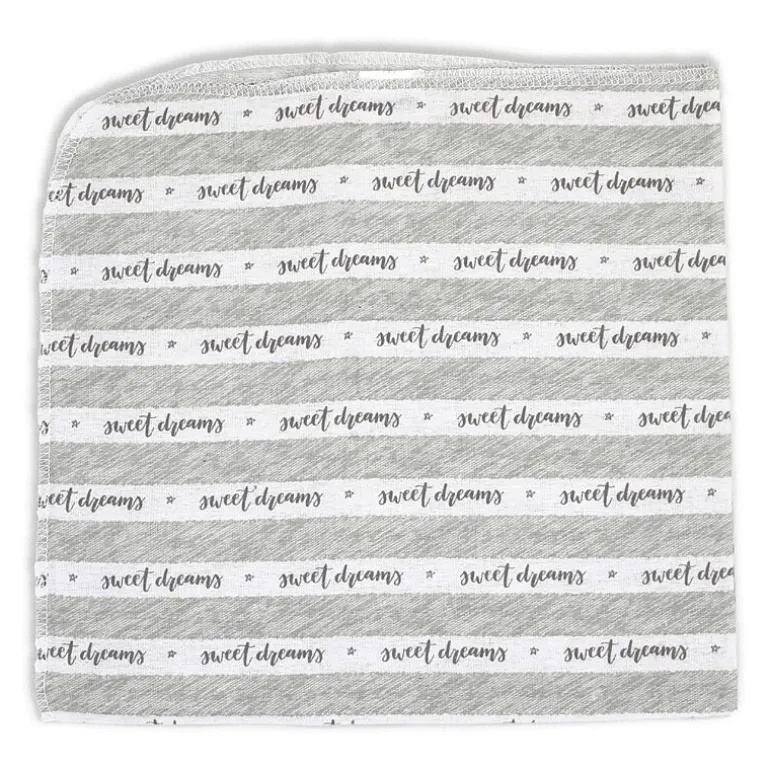 sweet dreams ☆ sweet dreams ☆ sweet dreams ☆ sweet drea
eet dreams ☆ sweet dreams ☆ sweet dreams ☆ sweet dreams ☆
☆ sweet dreams ☆ sweet dreams ☆ sweet dreams ☆ sweet drea
weet dreams ☆ sweet dreams ☆ sweet dreams ☆ sweet dreams ☆
☆ sweet dreams ☆ sweet dreams ☆ sweet dreams ☆ sweet drea
weet dreams ☆ sweet dreams ☆ sweet dreams ☆ sweet dreams ☆
☆ sweet dreams ☆ sweet dreams ☆ sweet dreams ☆ sweet drea
weet dreams ☆ sweet dreams ☆ sweet dreams ☆ sweet dreams ☆